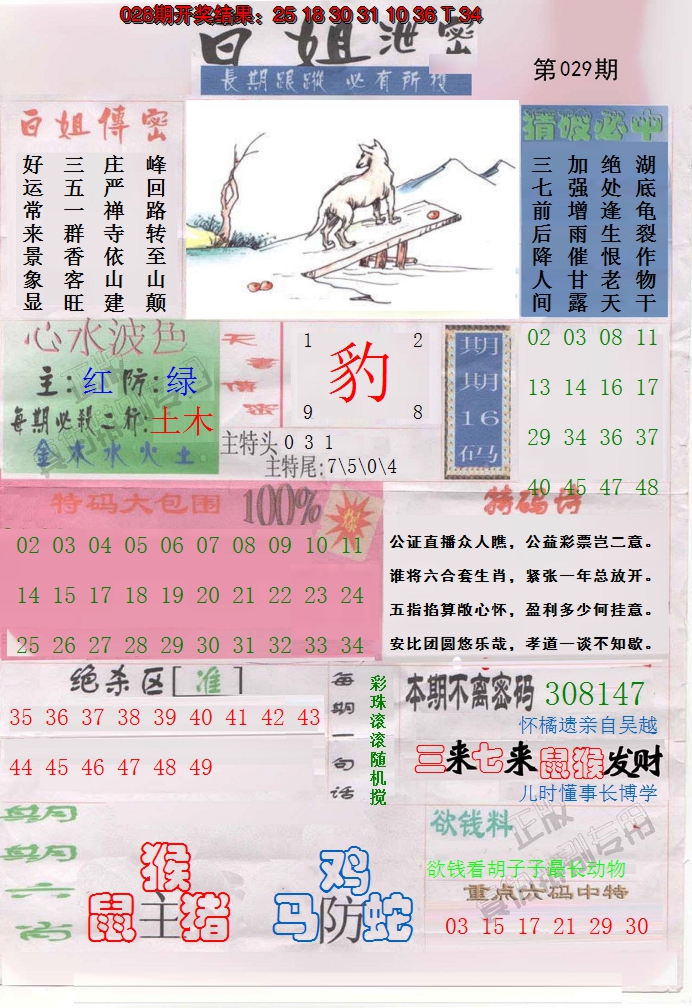 028期开奖结果：25 18 30 31 10 36 T 34
白姐泄密
第029期
長期跟蹤 必有所獲
白姐傳密
峰回路转至山颠
庄严禅寺依山建
三五一群香客旺
好运常来景象显
猜成必中
湖底龟裂作物干
绝处逢生恨老天
加强增雨催甘露
三七前后降人间
心水波色
主:红防:绿
每期必殺二行:土木
金木水火土
1 2
豹
9 8
主特头031
主特尾:7\5\0\4
期期16码
02 03 08 11
13 14 16 17
29 34 36 37
40 45 47 48
特码大包围 100%
02 03 04 05 06 07 08 09 10 11
14 15 17 18 19 20 21 22 23 24
25 26 27 28 29 30 31 32 33 34
特码诗
公证直播众人瞧，公益彩票岂二意。
谁将六合套生肖，紧张一年总放开。
五指掐算敞心怀，盈利多少何挂意。
安比团圆悠乐哉，孝道一谈不知歇。
绝杀区[准]
35 36 37 38 39 40 41 42 43
44 45 46 47 48 49
每期一句话
彩珠滚滚随机搅
本期不离密码 308147
怀橘遗亲自吴越
三来七来鼠猴发财
儿时懂事长博学
每期六肖
猴
鼠主猪
鸡
马防蛇
欲钱料
欲钱看胡子子最长动物
重点六码中特
03 15 17 21 29 30